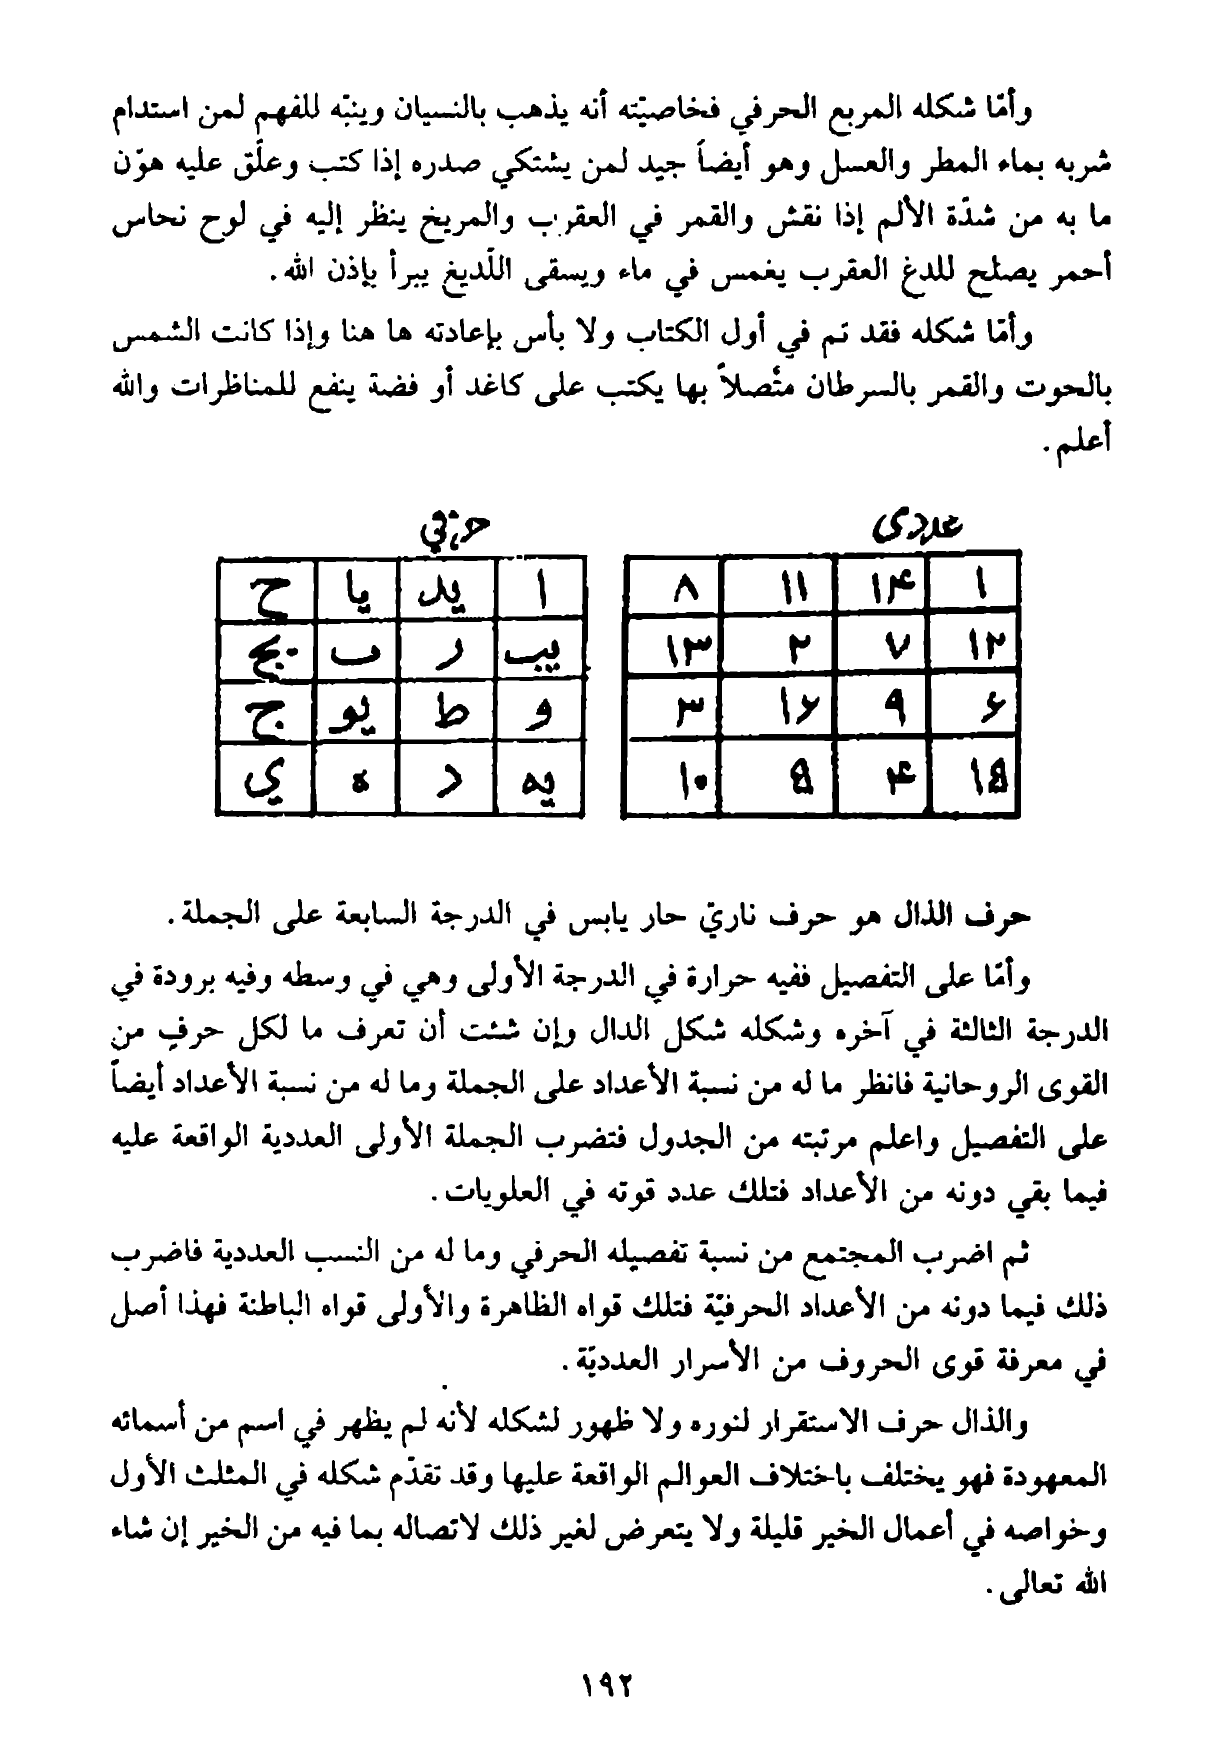 وأمّا شكله المربع الحرفي فخاصيّته أنه يذهب بالنسيان وينبّه للفهم لمن استدام
شربه بماء المطر والعسل وهو أيضاً جيد لمن يشتكي صدره إذا كتب وعلّق عليه هوّن
ما به من شدّة الألم إذا نقش والقمر في العقرب والمريخ ينظر إليه في لوح نحاس
أحمر يصلح للدغ العقرب يغمس في ماء ويسقى اللّديغ يبرأ بإذن الله.
وأمّا شكله فقد تم في أول الكتاب ولا بأس بإعادته ها هنا وإذا كانت الشمس
بالحوت والقمر بالسرطان متّصلاً بها يكتب على كاغد أو فضة ينفع للمناظرات والله
أعلم.
عددى
۱ ۱۴ ۱۱ ۸
۱۲ ۷ ۲ ۱۳
۶ ۹ ۱۶ ۳
۱۵ ۴ ۵ ۱۰
حرفي
ا يد يا ح
يب ر ب يج
و ط يو ج
يه د ه ي
حرف الذال هو حرف ناريّ حار يابس في الدرجة السابعة على الجملة.
وأمّا على التفصيل ففيه حرارة في الدرجة الأولى وهي في وسطه وفيه برودة في
الدرجة الثالثة في آخره وشكله شكل الدال وإن شئت أن تعرف ما لكل حرفٍ من
القوى الروحانية فانظر ما له من نسبة الأعداد على الجملة وما له من نسبة الأعداد أيضاً
على التفصيل واعلم مرتبته من الجدول فتضرب الجملة الأولى العددية الواقعة عليه
فيما بقي دونه من الأعداد فتلك عدد قوته في العلويات.
ثم اضرب المجتمع من نسبة تفصيله الحرفي وما له من النسب العددية فاضرب
ذلك فيما دونه من الأعداد الحرفيّة فتلك قواه الظاهرة والأولى قواه الباطنة فهذا أصل
في معرفة قوى الحروف من الأسرار العدديّة.
والذال حرف الاستقرار لنوره ولا ظهور لشكله لأنه لم يظهر في اسم من أسمائه
المعهودة فهو يختلف باختلاف العوالم الواقعة عليها وقد تقدّم شكله في المثلث الأول
وخواصه في أعمال الخير قليلة ولا يتعرض لغير ذلك لاتصاله بما فيه من الخير إن شاء
الله تعالى.
١٩٢